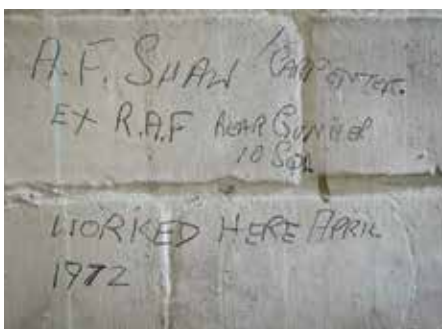 A.F. SHAW CARPENTER.
EX R.A.F REAR GUNNER
10 SQD
WORKED HERE APRIL
1972